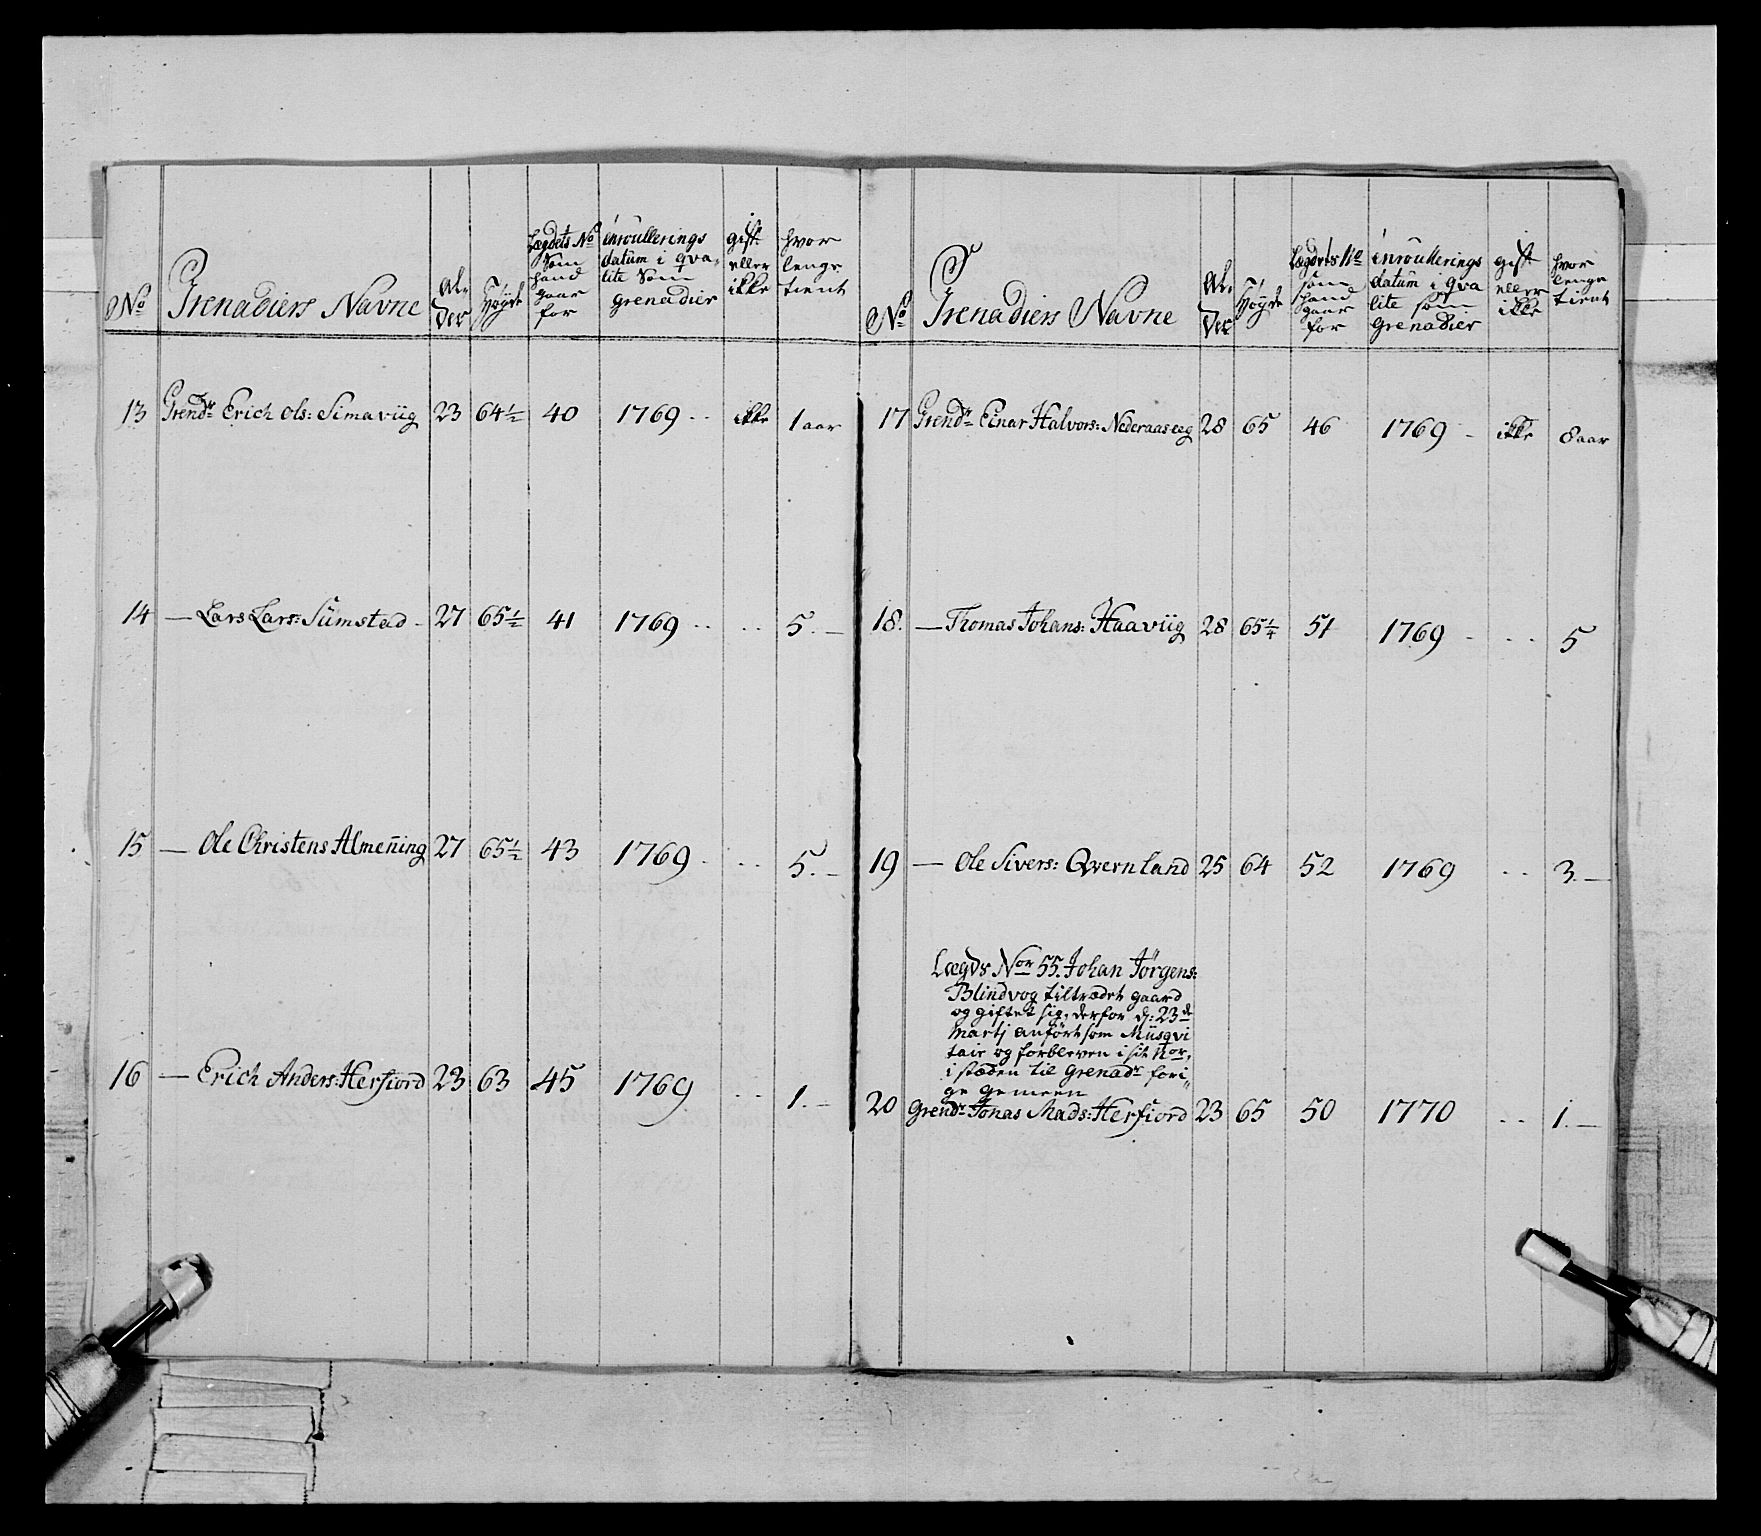 No Grenadiers Navne Al-der Høyde Lægdets No Som hand gaar for inroullerings datum i qva-lite Som grenadier gift eller ikke hvor lenge tient
13 Grendr Erich Ols: Simaviig 23 64½ 40 1769 .. ikke 1 aar
14 — Lars Lars: Sümstad - 27 65½ 41 1769 .. .. 5. —
15 — Ole Christens Almening 27 65½ 43 1769 . .. 5. —
16 — Erich Anders: Herfiord 23 63 45 1769 .. 1. —
No Grenadiers Navne Al-der Høyde Lægdets No som hand gaar for inroullerings datum i qva lite som grenadier gift eller ikke hvor lenge tient
17 Grendr Einar Halvors: Nederaaseeg 28 65 46 1769 - ikke 8 aar
18. — Thomas Johans: Haaviig 28 65¼ 51 1769 . .. 5
19 — Ole Sivers: Qvernland 25 64 52 1769 .. 3. —
Lægds Nor 55. Johan Jörgens:
Blindvog tiltrædet gaard
og giftet sig, derfor d: 23de
Martj anført som Müsqvi
tair og forbleven i sit Nor,
i stæden til Grenadr fori"
ge gemeen
20 Grendr Jonas Mads: Herfiord 23 65 50 1770 .. 1. —